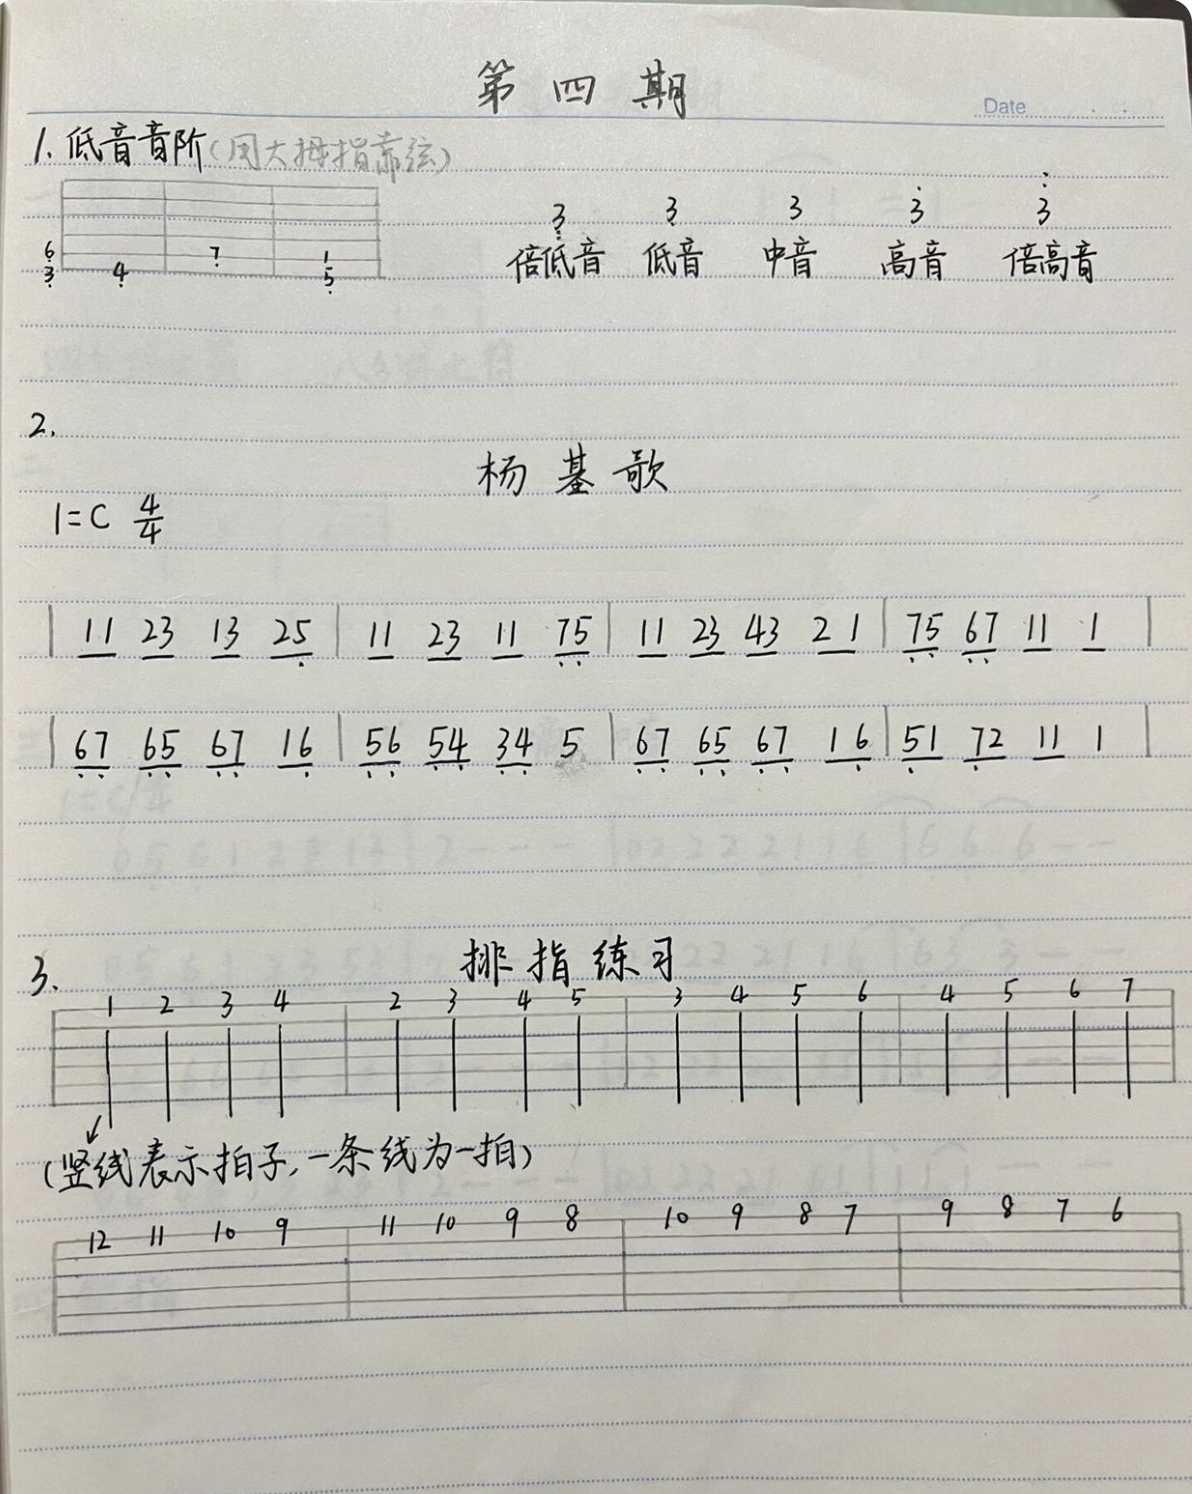 第四期
Date
1. 低音音阶(用大拇指靠弦)
3̣̣ 3̣ 3 3̇ 3̈
倍低音 低音 中音 高音 倍高音
6̣ 7̣ 1
3̣ 4̣ 5̣
2.
杨基歌
1=C 4/4
| 11 23 13 25̣ | 11 23 11 7̣5̣ | 11 23 43 2 1 | 7̣5̣ 6̣7̣ 11 1 |
| 6̣7̣ 6̣5̣ 6̣7̣ 16̣ | 5̣6̣ 5̣4̣ 3̣4̣ 5 | 6̣7̣ 6̣5̣ 6̣7̣ 1 6̣ | 5̣1 7̣2 11 1 |
3. 排指练习
1 2 3 4 | 2 3 4 5 | 3 4 5 6 | 4 5 6 7
(竖线表示拍子,一条线为一拍)
12 11 10 9 | 11 10 9 8 | 10 9 8 7 | 9 8 7 6